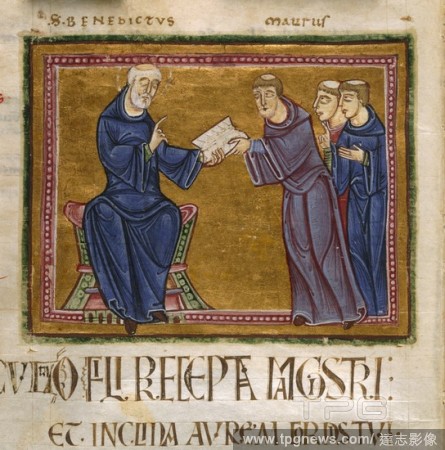 S. BENEDICTVS Maurus
O FILI RECEPTA MAGISTRI:
ET INCLINA AVREM
TPG
www.tpgnews.com/達志影像